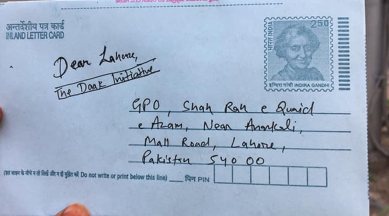 अन्तर्देशीय पत्र कार्ड
INLAND LETTER CARD
भारत INDIA
250
इन्दिरा गांधी INDIRA GANDHI
Dear Lahore,
The Daak Initiative
GPO, Shah Rah e Quaid
e Azam, Near Anarkali,
Mall Road, Lahore,
Pakistan 54000
Do not write or print below this line)
पिन PIN